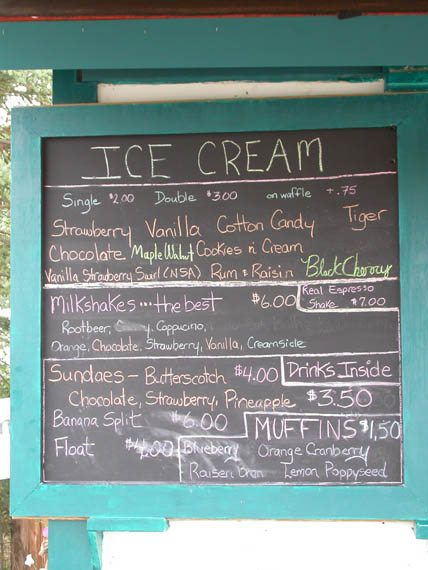 ICE CREAM
Single $2.00 Double $3.00 on waffle +.75
Strawberry Vanilla Cotton Candy Tiger
Chocolate Maple Walnut Cookies n' Cream
Vanilla Strawberry Swirl (NSA) Rum & Raisin Black Cherry
Milkshakes ... the best $6.00
Real Espresso
Shake $7.00
Rootbeer, Cappucino,
Orange, Chocolate, Strawberry, Vanilla, Creamsicle
Sundaes - Butterscotch $4.00
Drinks Inside
Chocolate, Strawberry, Pineapple $3.50
Banana Split $6.00
MUFFINS $1.50
Float $4.00
Blueberry Orange Cranberry
Raisen Bran Lemon Poppyseed